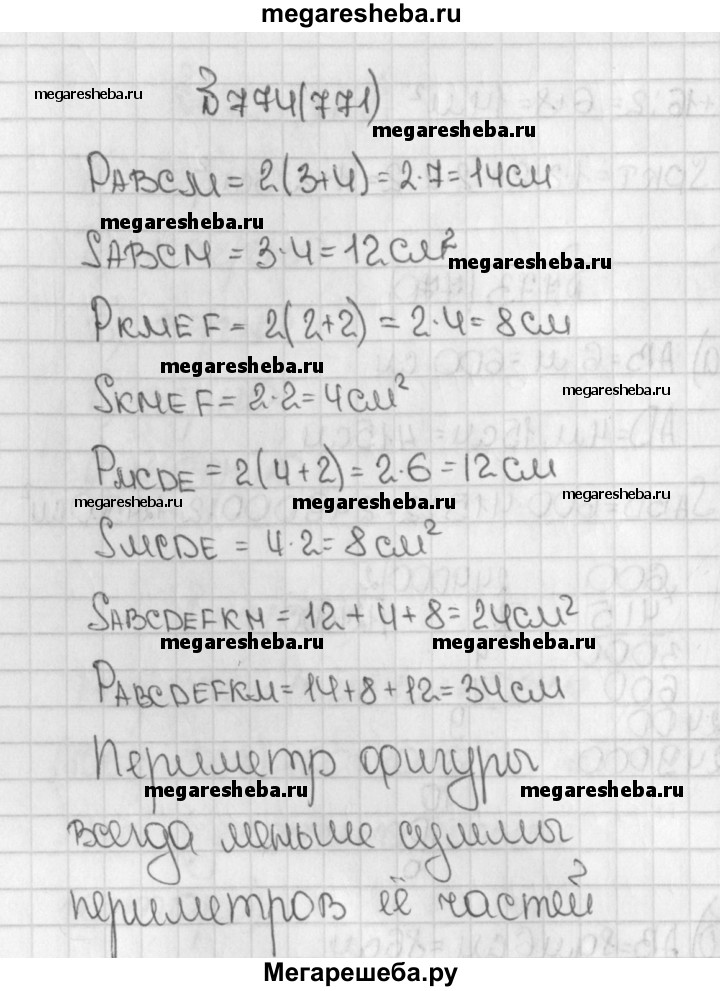 megaresheba.ru
megaresheba.ru
№ 774(771)
megaresheba.ru
PABCM = 2(3+4) = 2·7 = 14 см
megaresheba.ru
SABCM = 3·4 = 12 см²
megaresheba.ru
PKMEF = 2(2+2) = 2·4 = 8 см
megaresheba.ru
SKMEF = 2·2 = 4 см²
megaresheba.ru
PMCDE = 2(4+2) = 2·6 = 12 см
megaresheba.ru megaresheba.ru megaresheba.ru
SMCDE = 4·2 = 8 см²
SABCDEFKM = 12 + 4 + 8 = 24 см²
megaresheba.ru megaresheba.ru
PABCDEFKM = 14 + 8 + 12 = 34 см
Периметр фигуры
megaresheba.ru megaresheba.ru
всегда меньше суммы
периметров её частей
Мегарешеба.ру